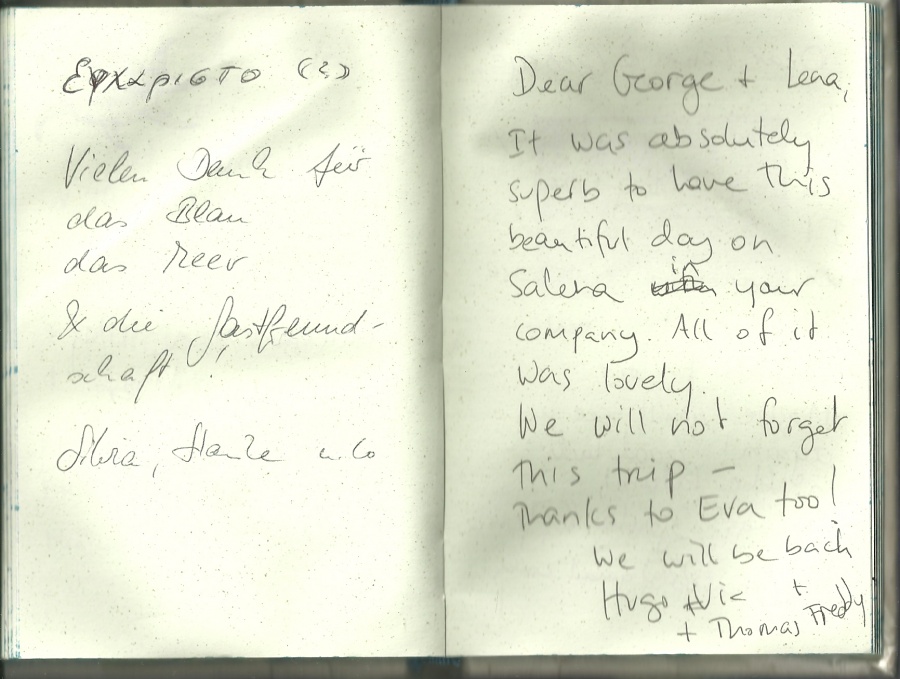 Ευχαριστο (?)
Vielen Dank für
das Blau
das Meer
& die Gastfreund-
schaft!
Silvia,
Dear George + Lena,
It was absolutely
superb to have this
beautiful day on
Salena in your
company. All of it
was lovely.
We will not forget
this trip –
Thanks to Eva too!
We will be back
Hugo + Vic +
+ Thomas Freddy